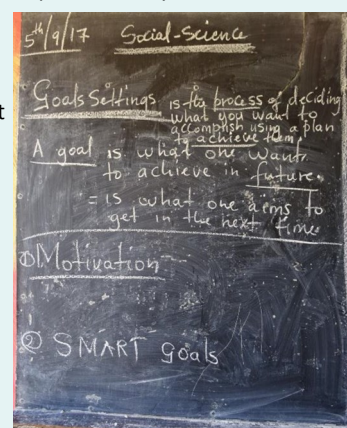 t
5th/9/17 Social-Science
Goals Settings is the process of deciding
what you want to
accomplish using a plan
to achieve them.
A goal is what one wants
to achieve in future.
= is what one aims to
get in the next time.
① Motivation
② SMART Goals